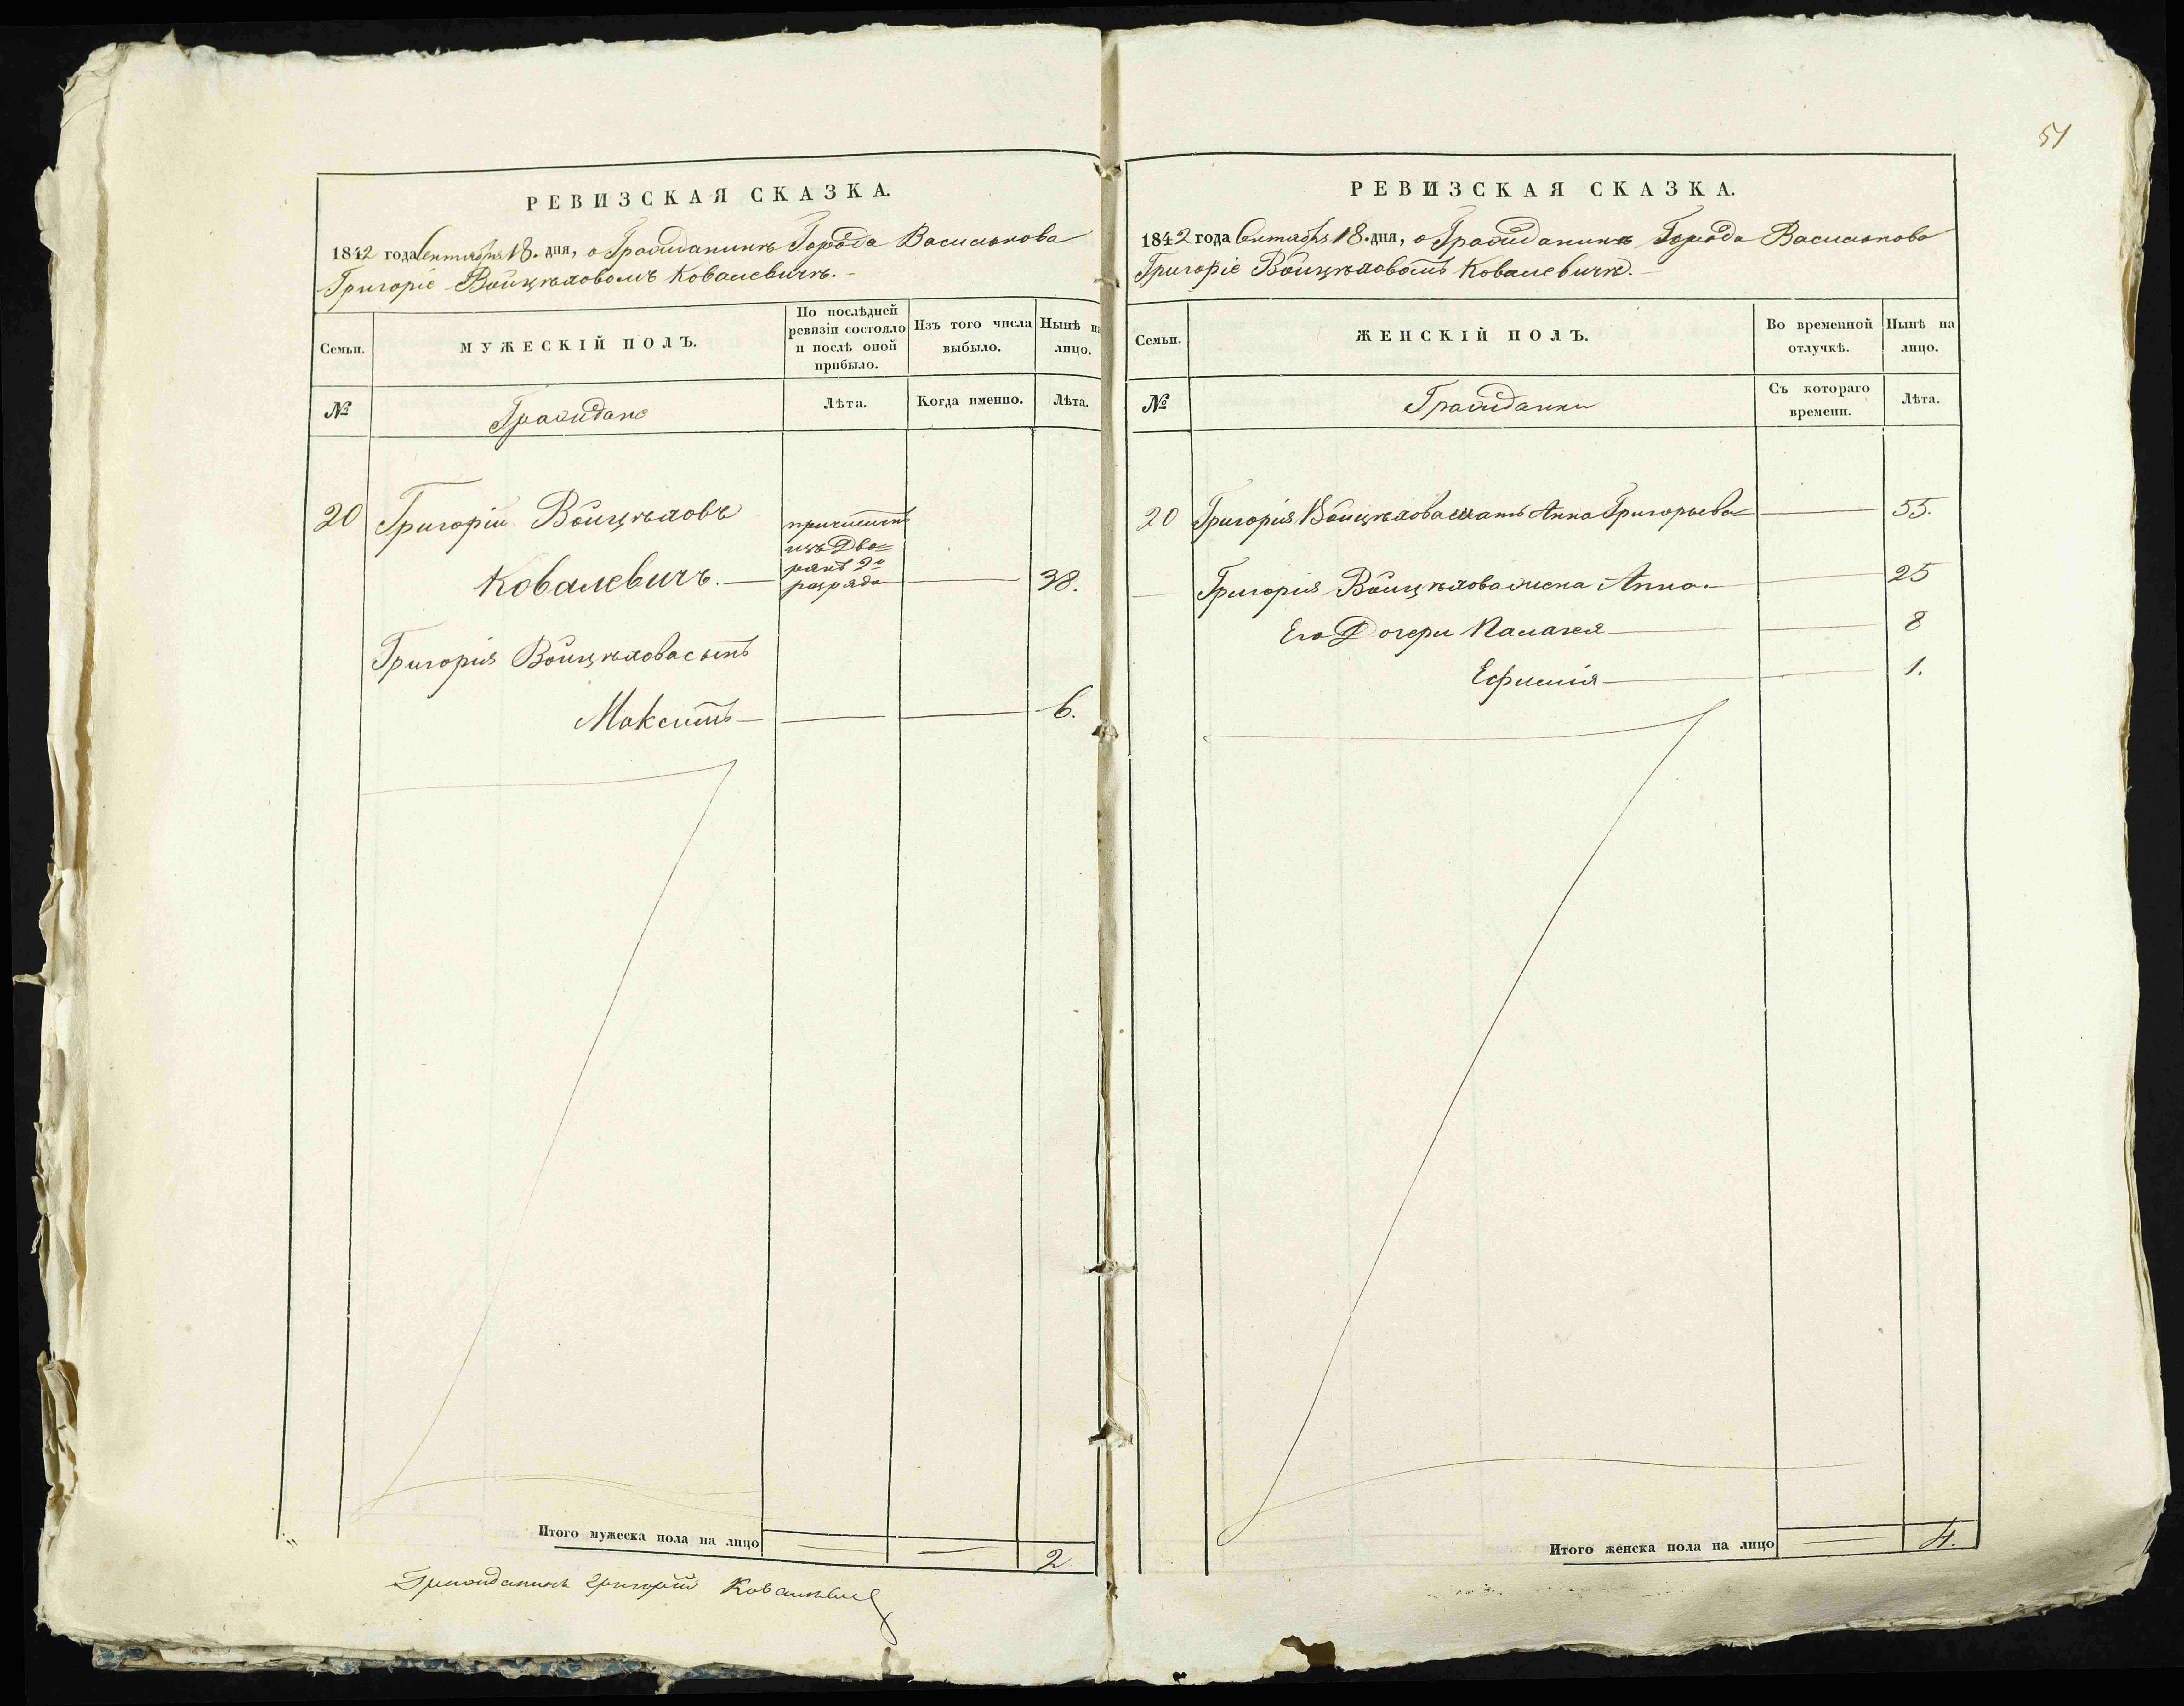 РЕВИЗСКАЯ СКАЗКА.
1842 года Сентября 18. дня, о Гражданинѣ Города Василькова
Григоріе Войцѣховомъ Ковалевичѣ.-
Семьи.
МУЖЕСКІЙ ПОЛЪ.
По послѣдней
ревизіи состояло
и послѣ оной
прибыло.
Изъ того числа
выбыло.
Нынѣ на
лицо.
№
Граждане
Лѣта.
Когда именно.
Лѣта.
20 Григорій Войцѣховъ
Ковалевичъ.
причисленъ
изъ Дво=
рянъ 2го
разряда
38.
Григорія Войцѣхова сынъ
Максимъ
6.
Итого мужеска пола на лицо
2
Гражданинъ Григорій Ковалевич
51
РЕВИЗСКАЯ СКАЗКА.
1842 года Сентября 18. дня, о Гражданинѣ Города Василькова
Григоріе Войцѣховомъ Ковалевичѣ.-
Семьи.
ЖЕНСКІЙ ПОЛЪ.
Во временной
отлучкѣ.
Нынѣ на
лицо.
№
Гражданки
Съ котораго
времени.
Лѣта.
20 Григорія Войцѣхова мать Анна Григорьева= 55.
Григорія Войцѣхова жена Анна 25
Его Дочери Палагея 8
Ефимія 1.
Итого женска пола на лицо
4.